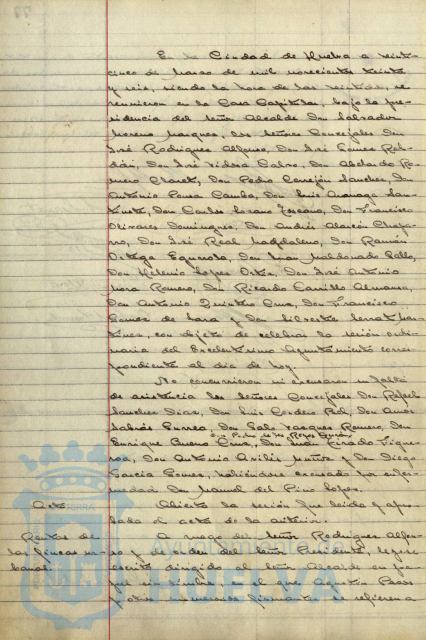 En la Ciudad de Huelva a veinti-
cinco de Marzo de mil novecientos treinta
y seis, siendo la hora de las veintidos, se
reunieron en la Casa Capitular, bajo la pre-
sidencia del Señor Alcalde Don Salvador
Moreno Marquez, los Señores Concejales Don
José Rodriguez Alfonso, Don José Gomez Rol-
dán, Don José Isidro Calvo, Don Abelardo Ro-
mero Claret, Don Pedro Cerrejón Sanchez, Don
Antonio Ponsa Camba, Don Luis San-
Don Carlos Lozano Toscano, Don Francisco
Olivares Dominguez, Don Andrés Alarcón Chapa-
rro, Don José Real Magdaleno, Don Ramón
Ortega Don Juan Maldonado Gallo,
Don Lopez Ortiz, Don José Antonio
Mora Romero, Don Ricardo Carrillo Almansa,
Don Antonio Quintero Cruz, Don Francisco
Gomez de Lara y Don Silvestre Mar-
tinez, con objeto de celebrar la sesión ordi-
naria del Excelentisimo Ayuntamiento corres-
pondiente al dia de hoy.
No concurrieron ni excusaron su falta
de asistencia los señores Concejales Don Rafael
Sanchez Diaz, Don Luis Cordero Don Amós
Sabrás Gurrea, Don Vazquez Romero, Don
Don Pedro de los Reyes
Enrique Bueno Cruz, Don Juan Tirado Figue-
roa, Don Antonio Muñoz y Don Diego
Garcia Gomez, habiéndose excusado por enfer-
medad Don Manuel del Pino Lopez.
Acta.
Abierta la sesión fué leida y apro-
bada el acta de la anterior.
Rentas de
las fincas ur-
banas.
A ruego del Señor Rodriguez Alfon-
so y de orden del Señor Presidente, leyose
escrito dirigido al Señor Alcalde en pa-
pel sin timbre en el que Agustín
y otros numerosos firmantes se refieren a